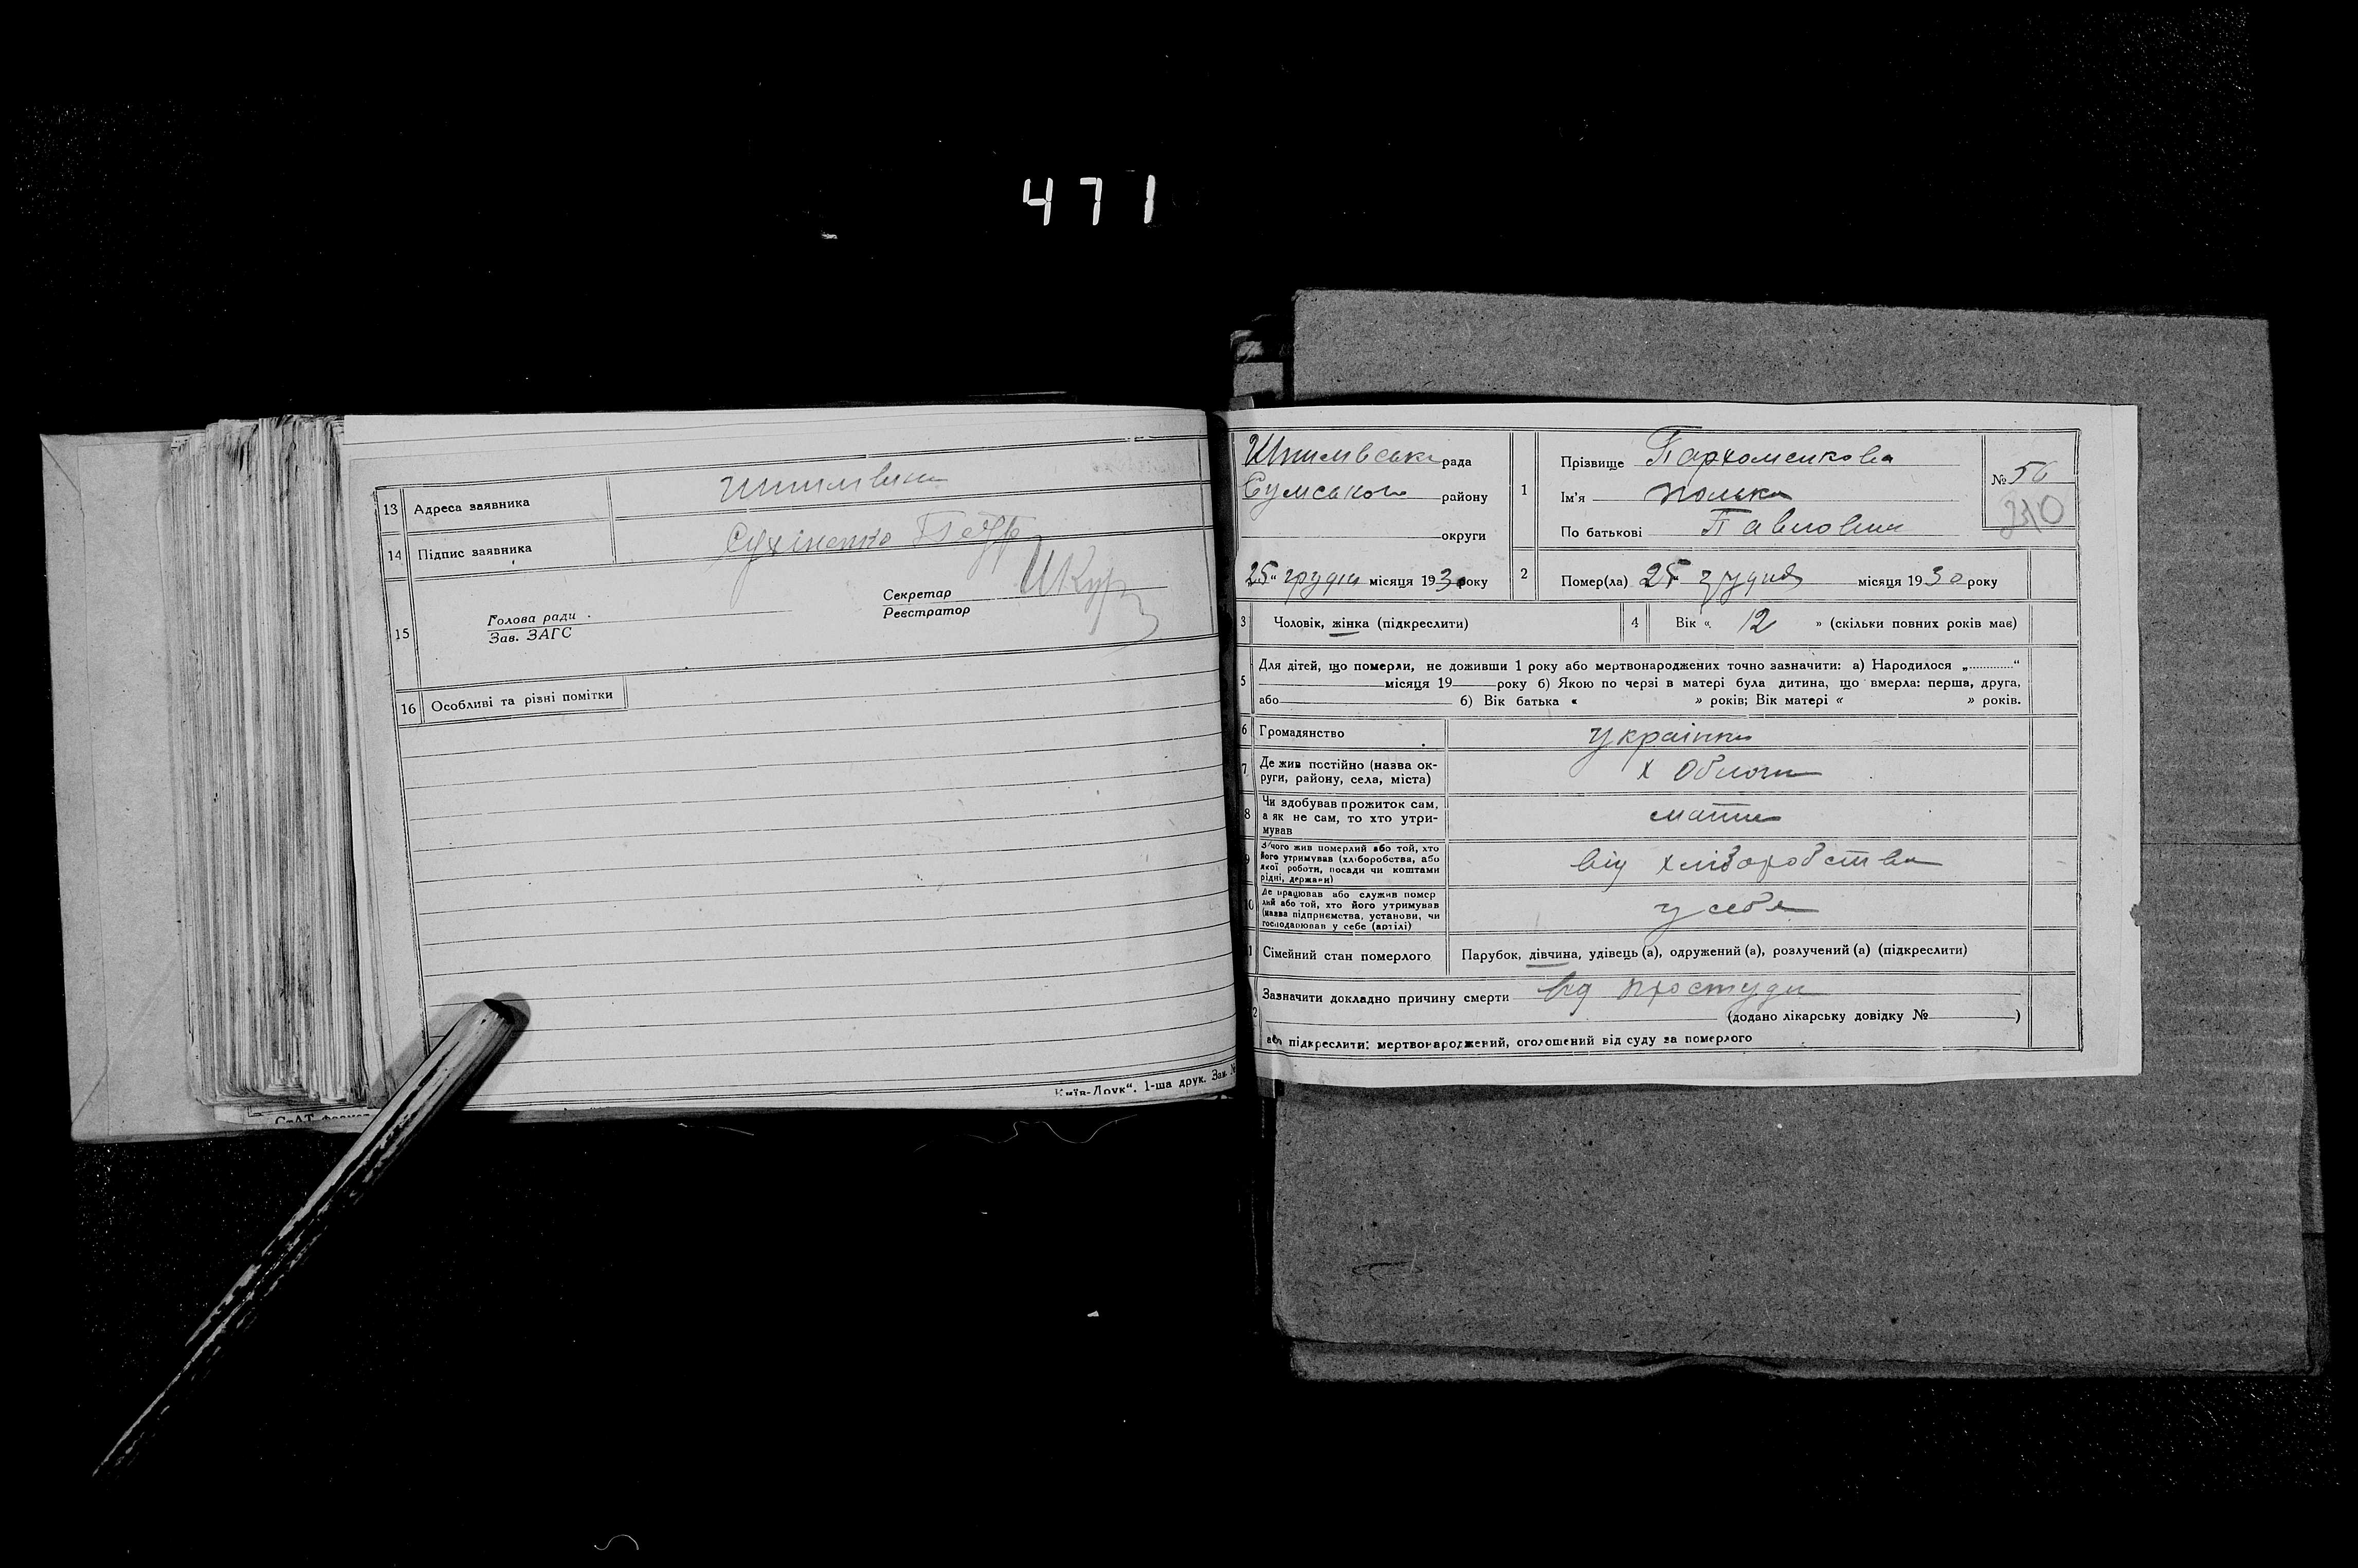 471
13 Адреса заявника Шпилівка
14 Підпис заявника Сухіненко Петр
15 Голова ради
Зав. ЗАГС
Секретар
Реєстратор
16 Особливі та різні помітки
Київ-Друк“. 1-ша друк. Зам. №
Шпилівська рада
Сумського району
округи
25 “ грудня місяця 1930 року
1 Прізвище Пархоменкова
Ім'я Полька
По батькові Павловна
№ 56
310
2 Помер(ла) 25 “ грудня місяця 1930 року
3 Чоловік, жінка (підкреслити)
4 Вік « 12 » (скільки повних років має)
5 Для дітей, що померли, не доживши 1 року або мертвонароджених точно зазначити: а) Народилося „............“
місяця 19 року б) Якою по черзі в матері була дитина, що вмерла: перша, друга,
або б) Вік батька « » років; Вік матері « » років.
6 Громадянство українка
7 Де жив постійно (назва ок-
руги, району, села, міста) х Облоги
8 Чи здобував прожиток сам,
а як не сам, то хто утри-
мував мати
9 З чого жив померлий або той, хто
його утримував (хліборобства, або
якої роботи, посади чи коштами
рідні, держави) від хліборобства
10 Де працював або служив помер
лий або той, хто його утримував
(назва підприємства, установи, чи
господарював у себе (артілі) у себе
Сімейний стан померлого Парубок, дівчина, удівець (а), одружений (а), розлучений (а) (підкреслити)
Зазначити докладно причину смерти від простуди
(додано лікарську довідку № )
або підкреслити: мертвонароджений, оголошений від суду за померлого